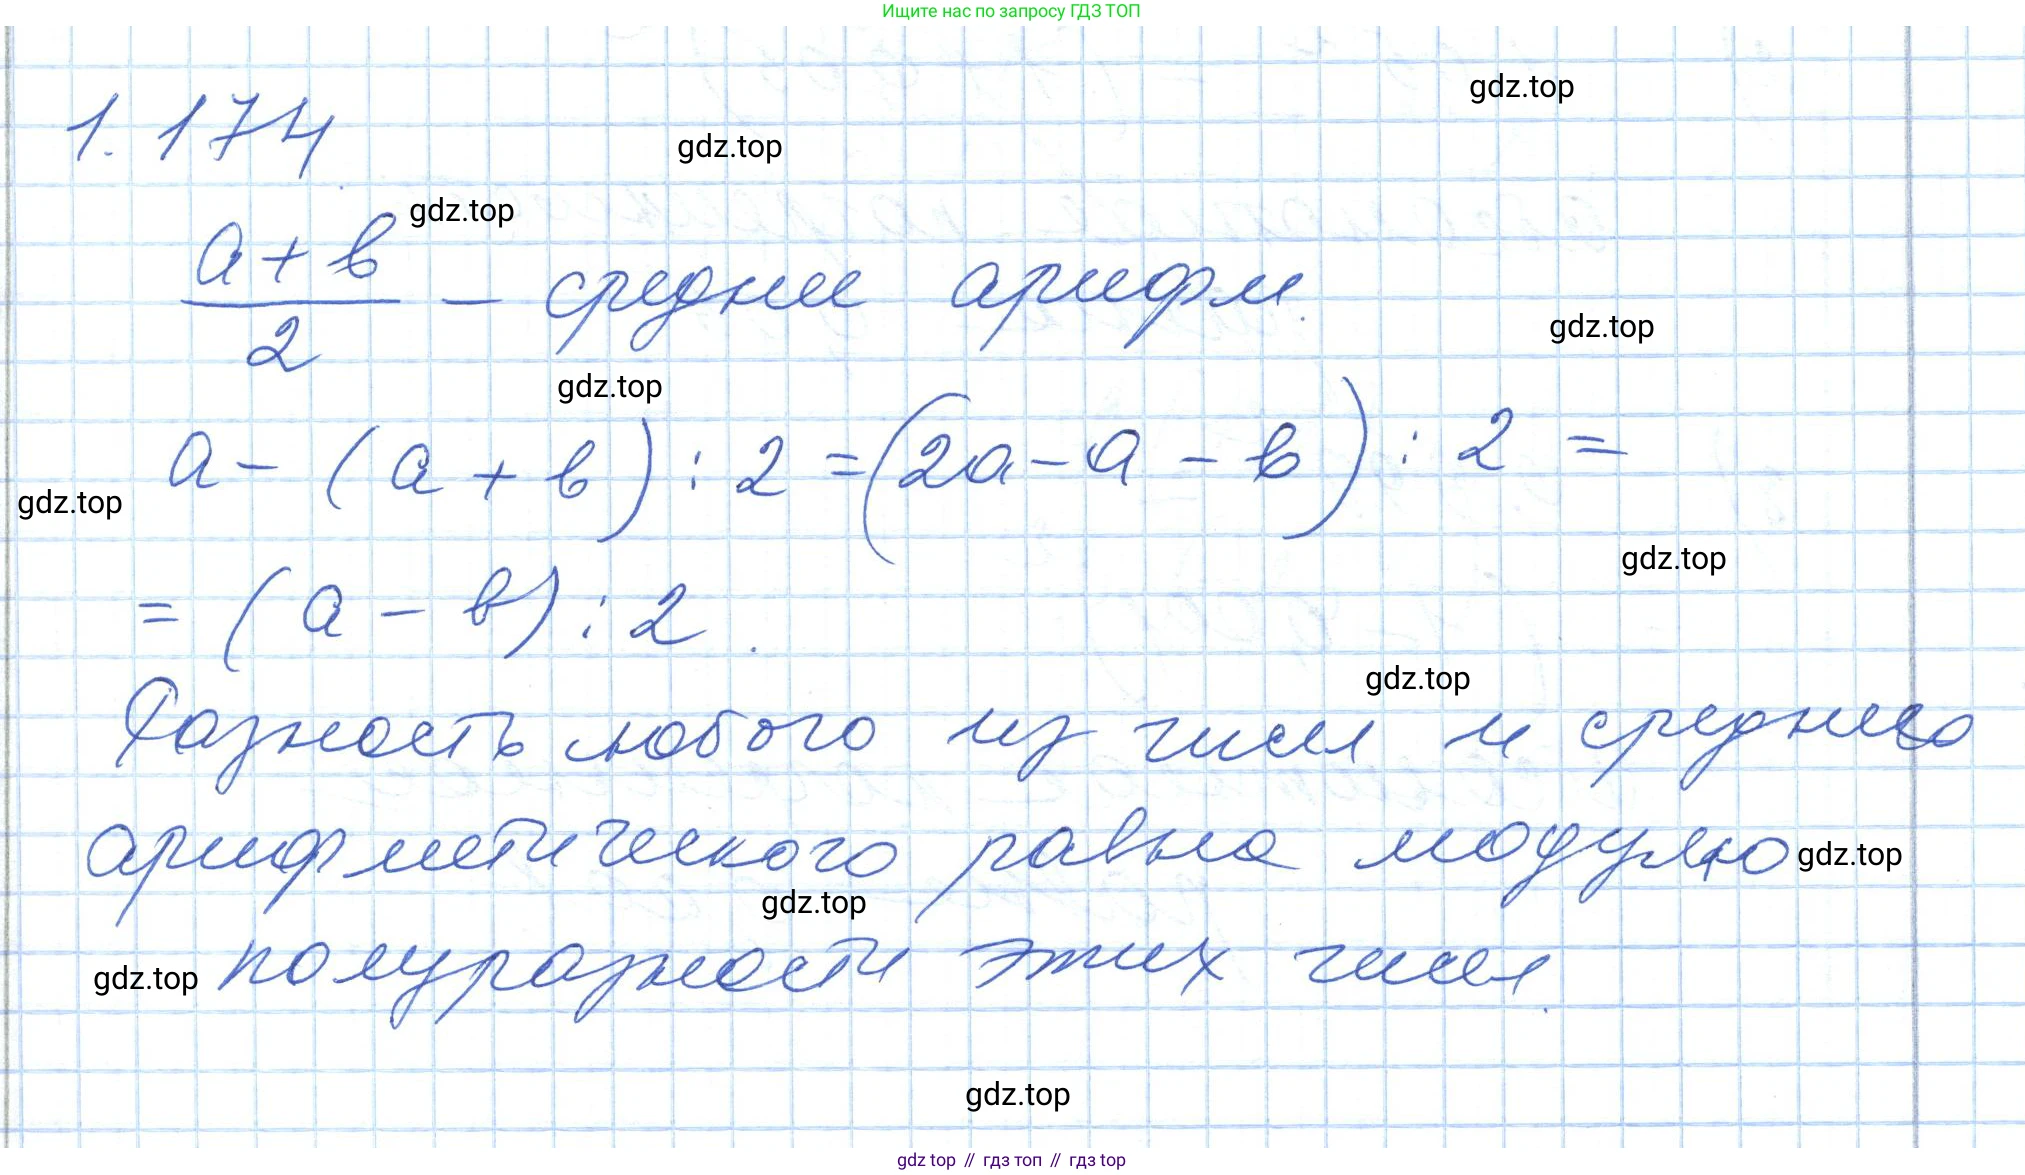 Ищите нас по запросу ГДЗ ТОП
gdz.top
1.174
gdz.top
gdz.top
a+b
— средние арифм.
2
gdz.top
gdz.top
a - (a + b) : 2 = (2a - a - b) : 2 =
gdz.top
gdz.top
= (a - b) : 2.
gdz.top
Разность любого из чисел и среднего
арифметического равна модулю
gdz.top
gdz.top
полуразности этих чисел.
gdz.top
gdz.top
gdz top // гдз топ // гдз top